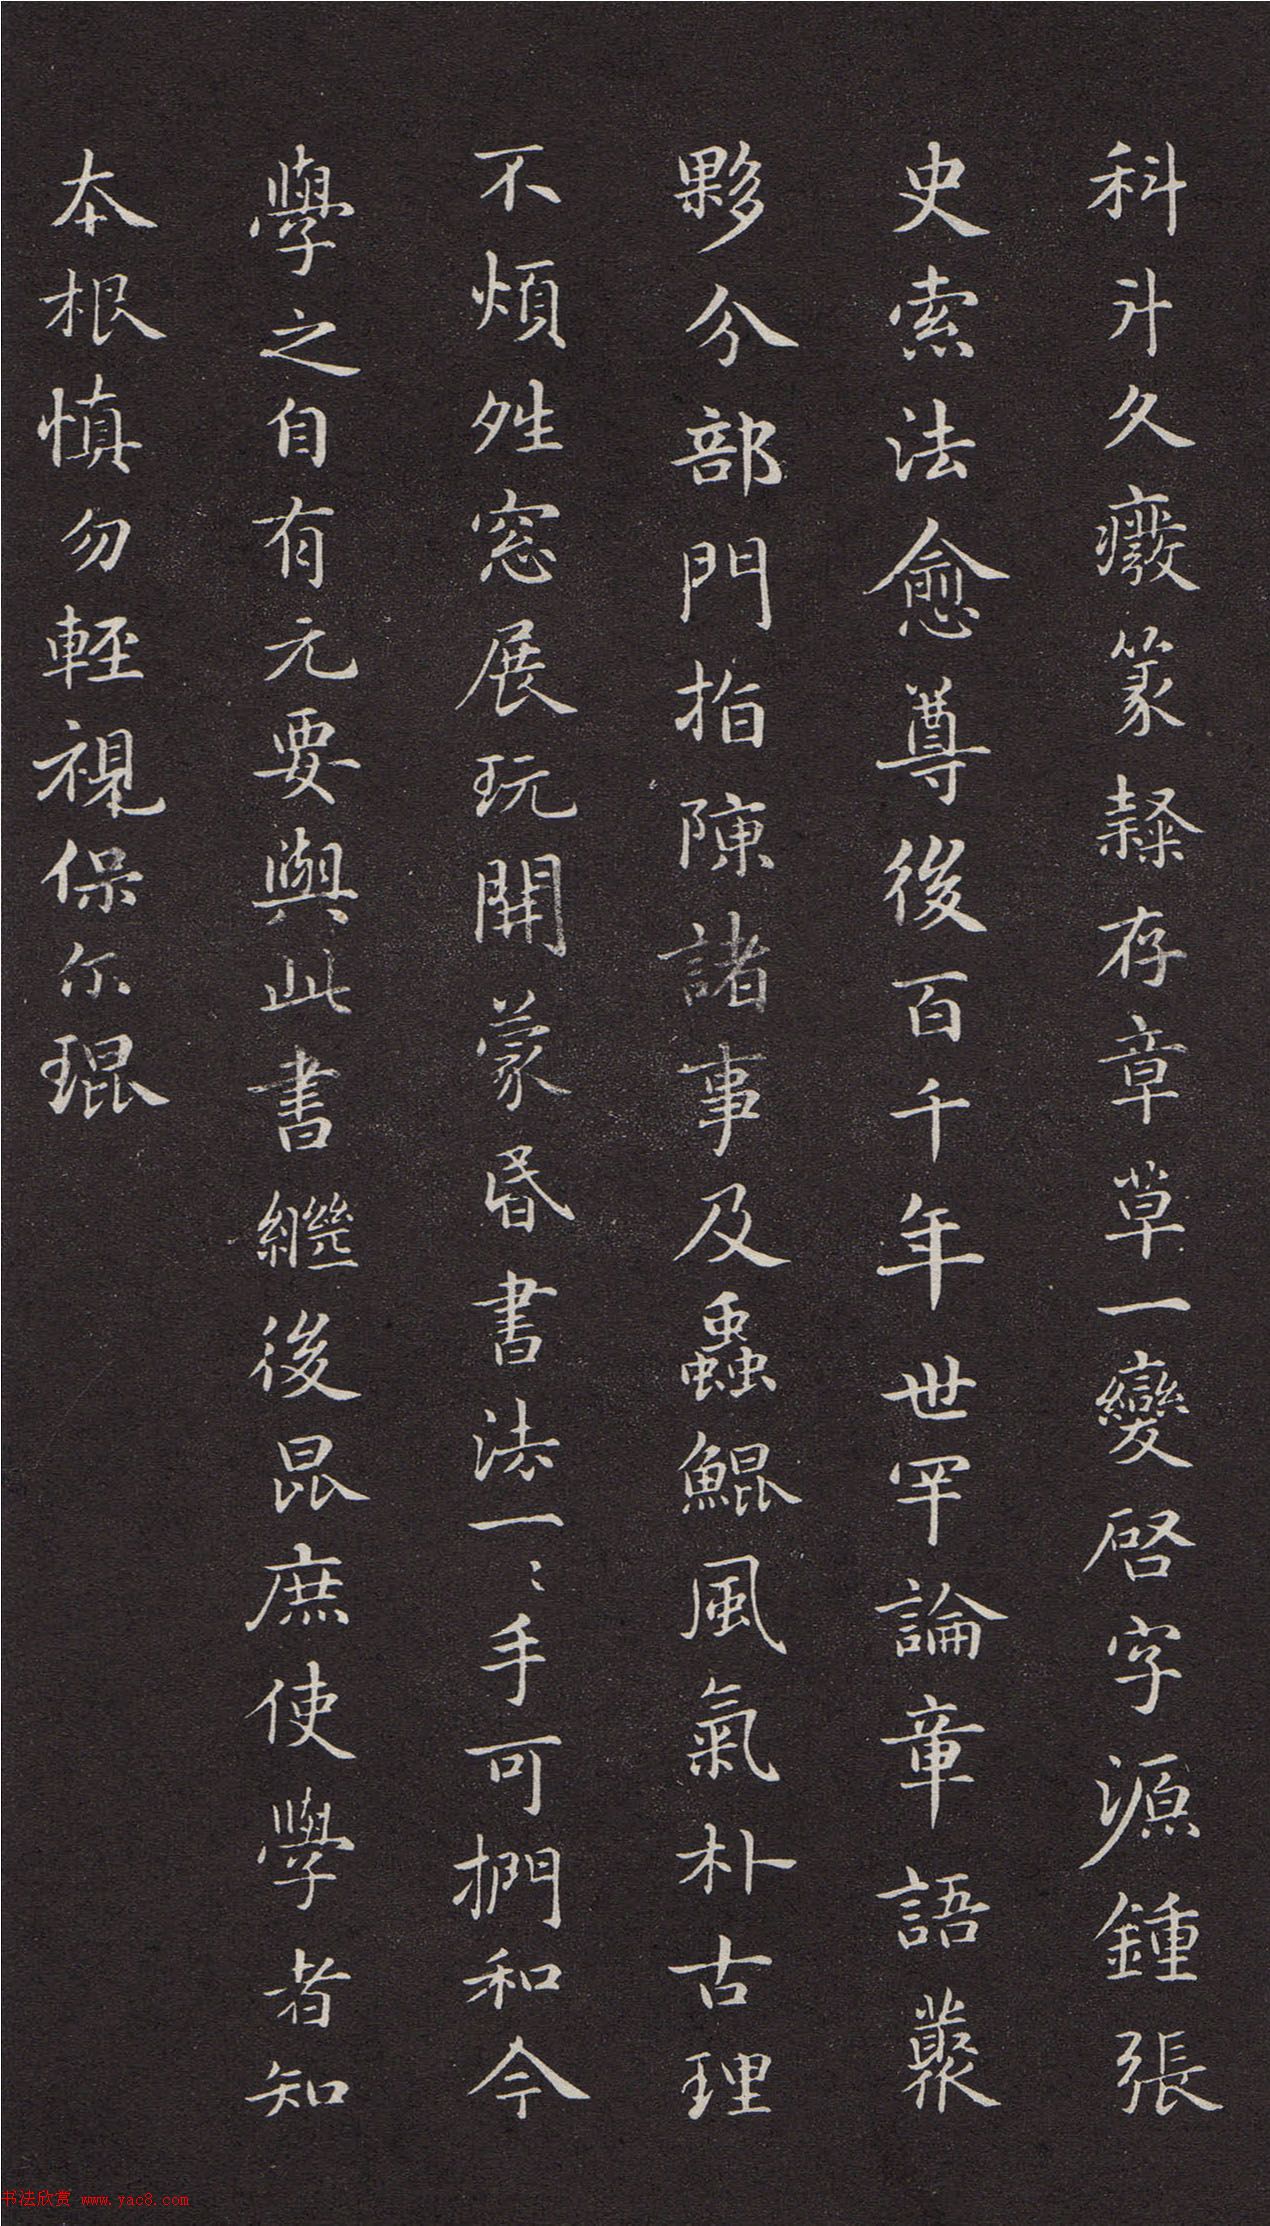 科斗久癈篆隸存章草一變啓字源鍾張
史索法愈尊後百千年世罕論章語叢
夥分部門指陳諸事及蟲鯤風氣朴古理
不煩姓窓展玩開蒙昏書法一〻手可捫和今
學之自有元要與此書繼後昆庶使學者知
本根慎勿輕視保尔琨
书法欣赏 www.yac8.com